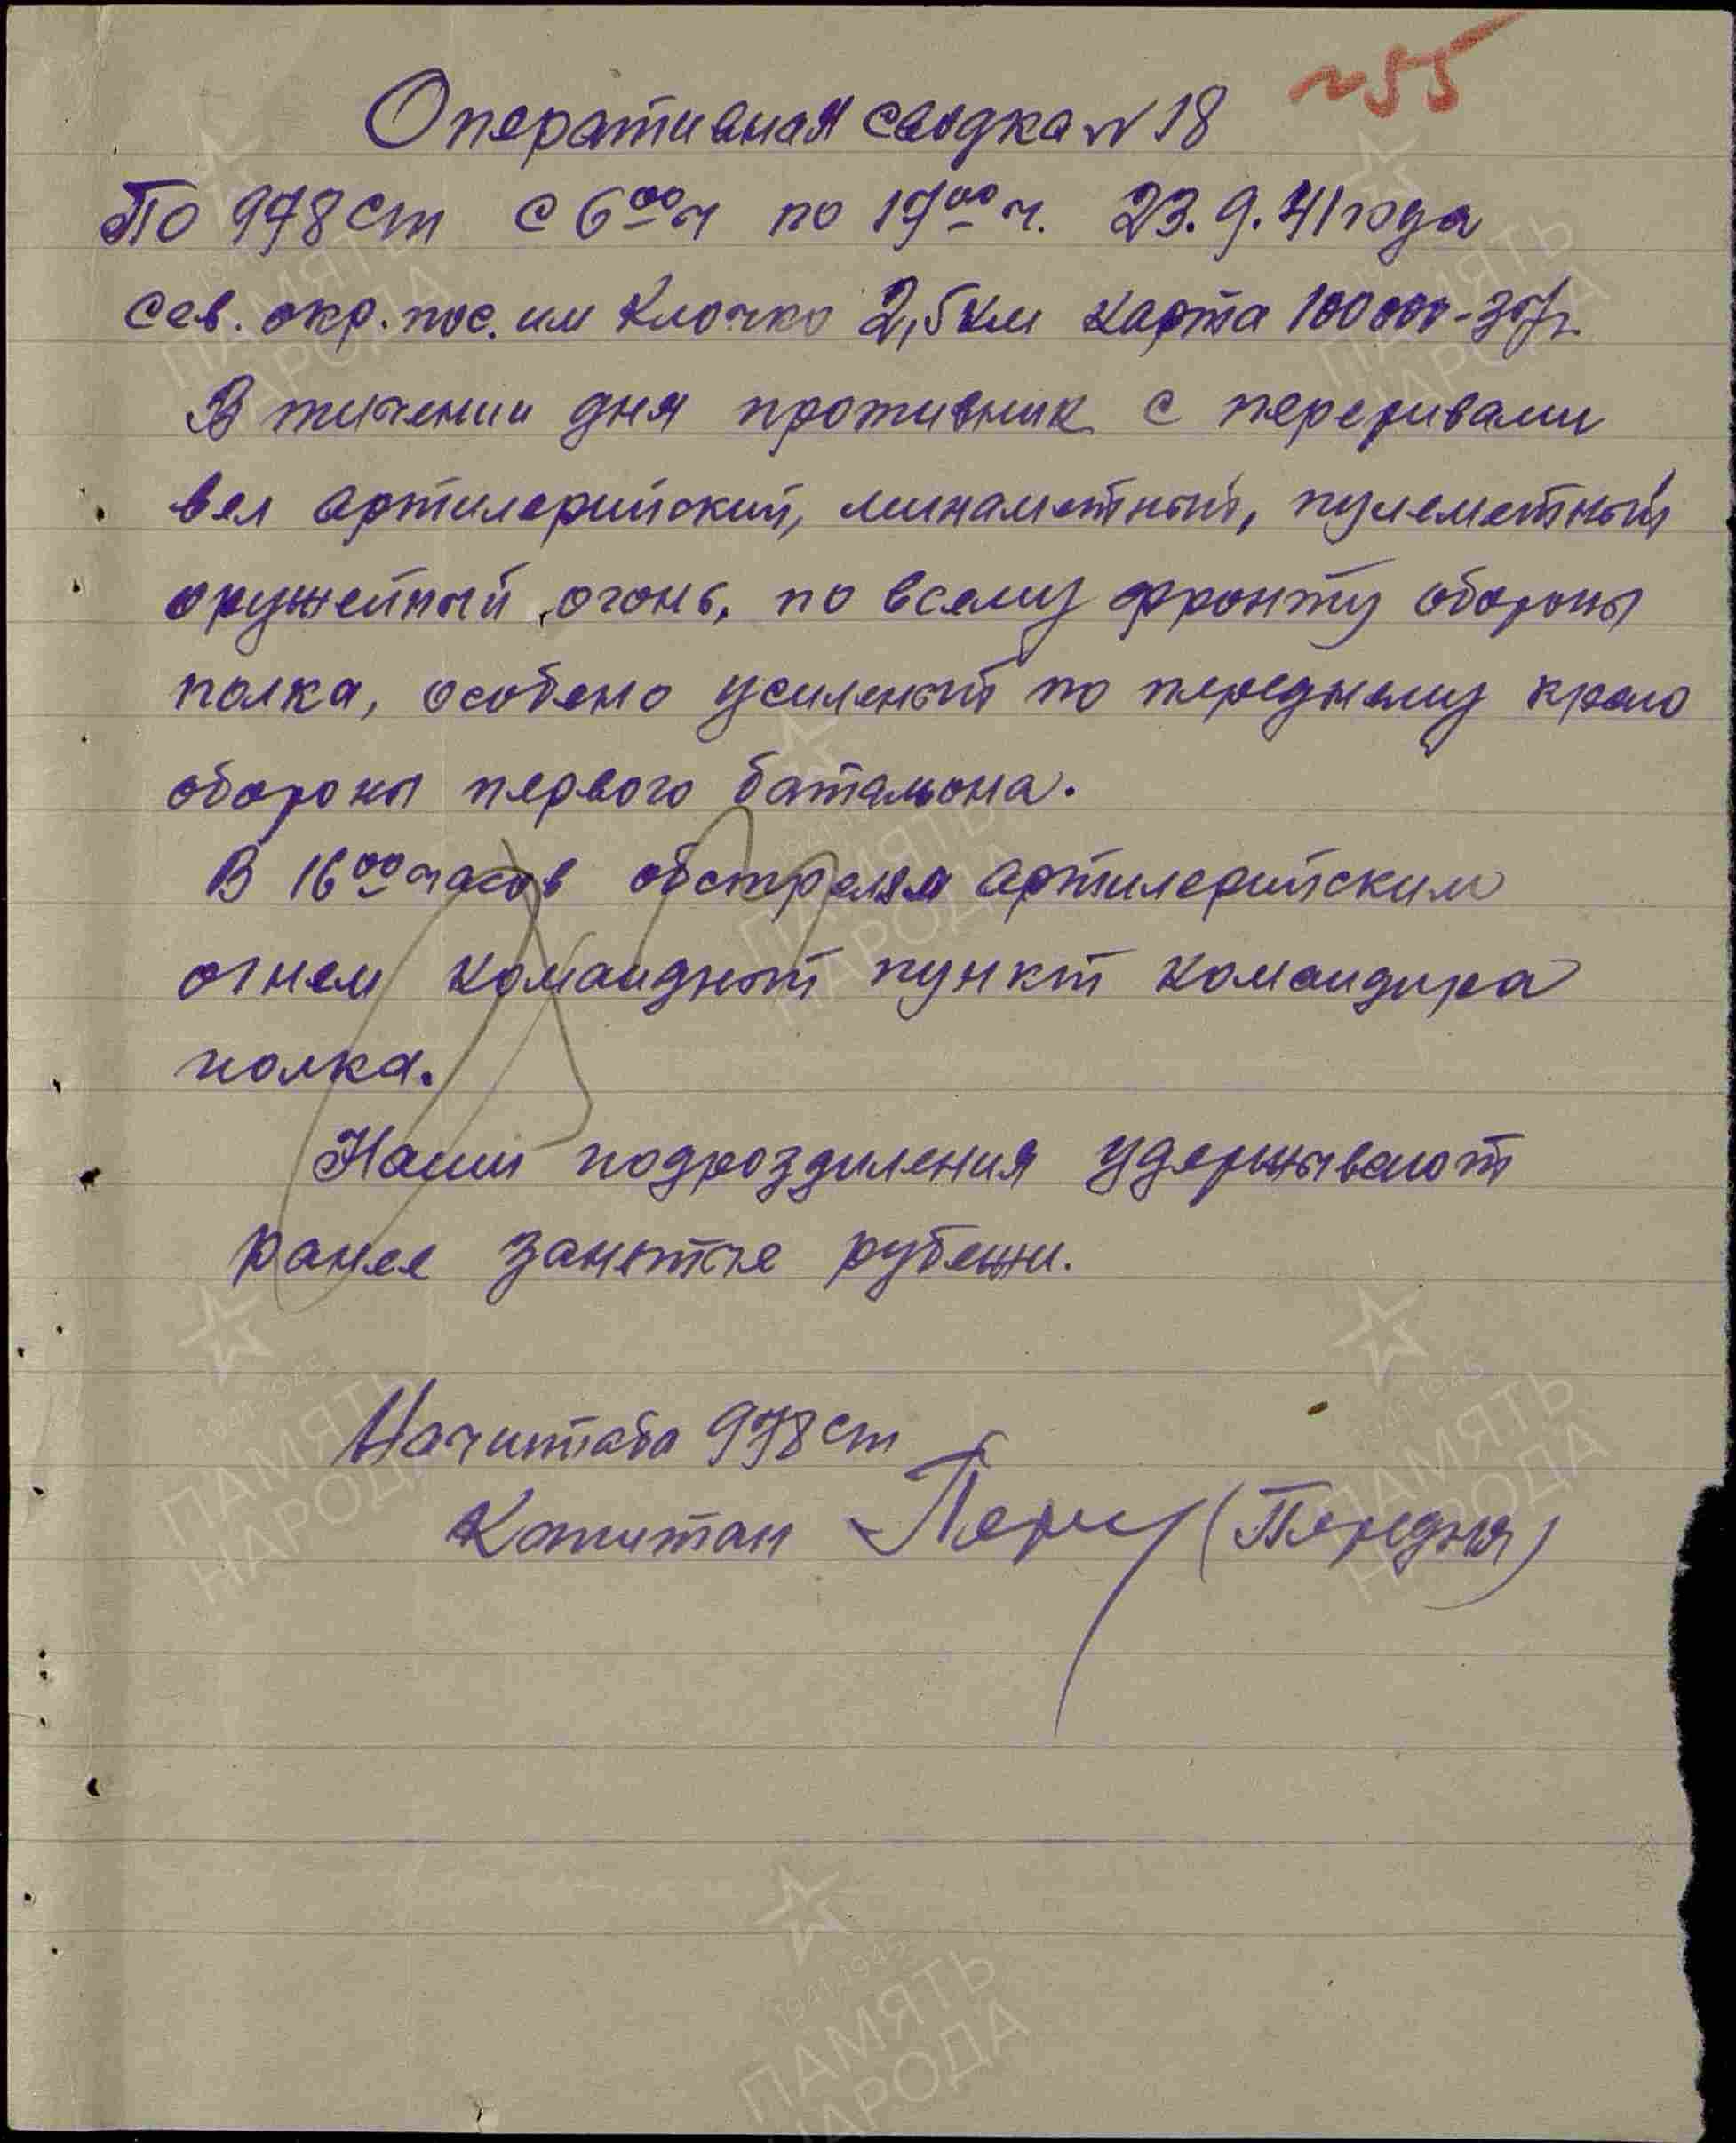 №55
Оперативная сводка № 18
По 978 сп с 6⁰⁰ч по 17⁰⁰ ч. 23.9.41 года
сев. окр. пос. им Клочко 2,5 км карта 100000-37г.
В течении дня противник с перерывами
вел артилерийский, минаметный, пулеметный
оружейный огонь, по всему фронту обороны
полка, особено усиленый по переднему краю
обороны первого батальона.
В 16⁰⁰ часов обстрелял артилерийским
огнем командный пункт командира
полка.
Наши подрозделения удерживают
ранее занятые рубежи.
Начштаба 978 сп
Капитан (Передня)
1941 1945
ПАМЯТЬ
НАРОДА